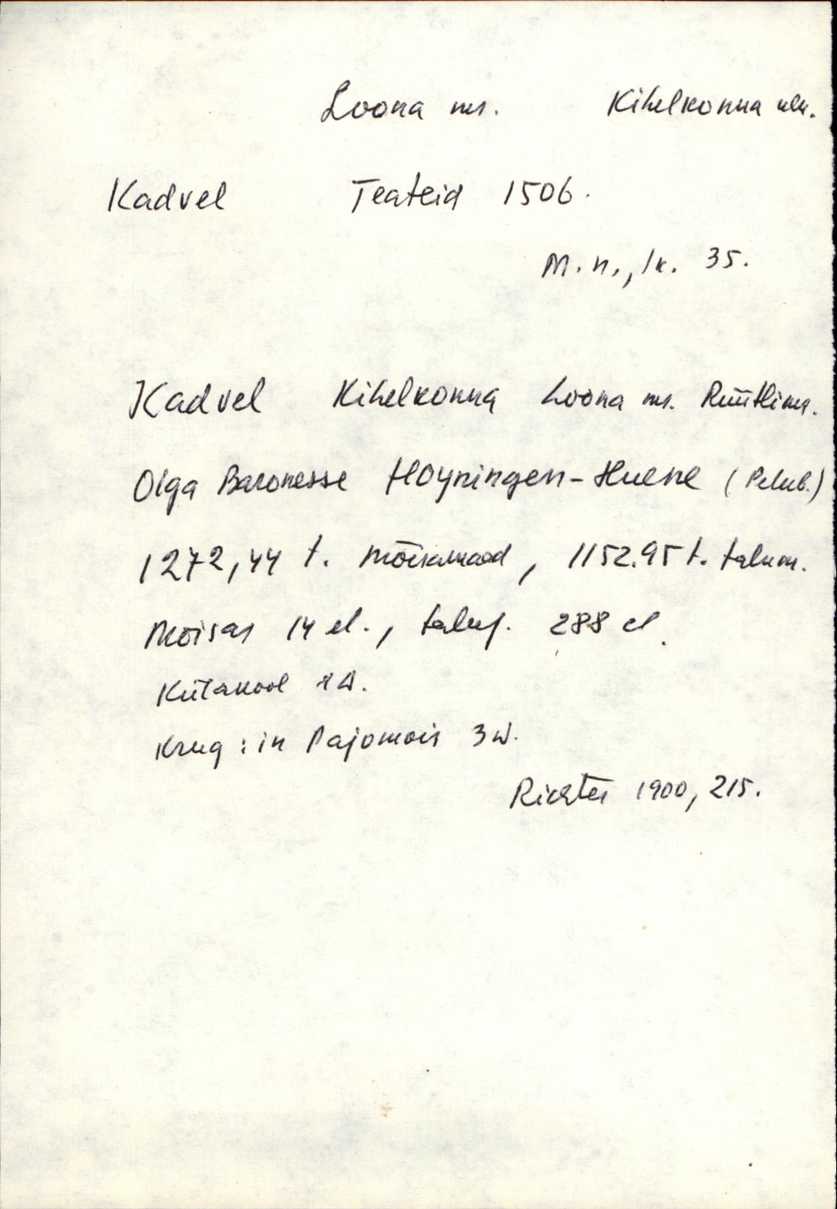 Loona ms. Kihelkonna khk.
Kadvel Teateid 1506.
M. n., lk. 35.
Kadvel Kihelkonna Loona ms. Rüütlims.
Olga Baronesse Hoyningen-Huene
1272,44 t. mõisamaad, 1152.95 t. talum.
Mõisas 14 el., taluj. 288 el.
Külakool
Krug: in Pajomois 3 W.
Richter 1900, 215.